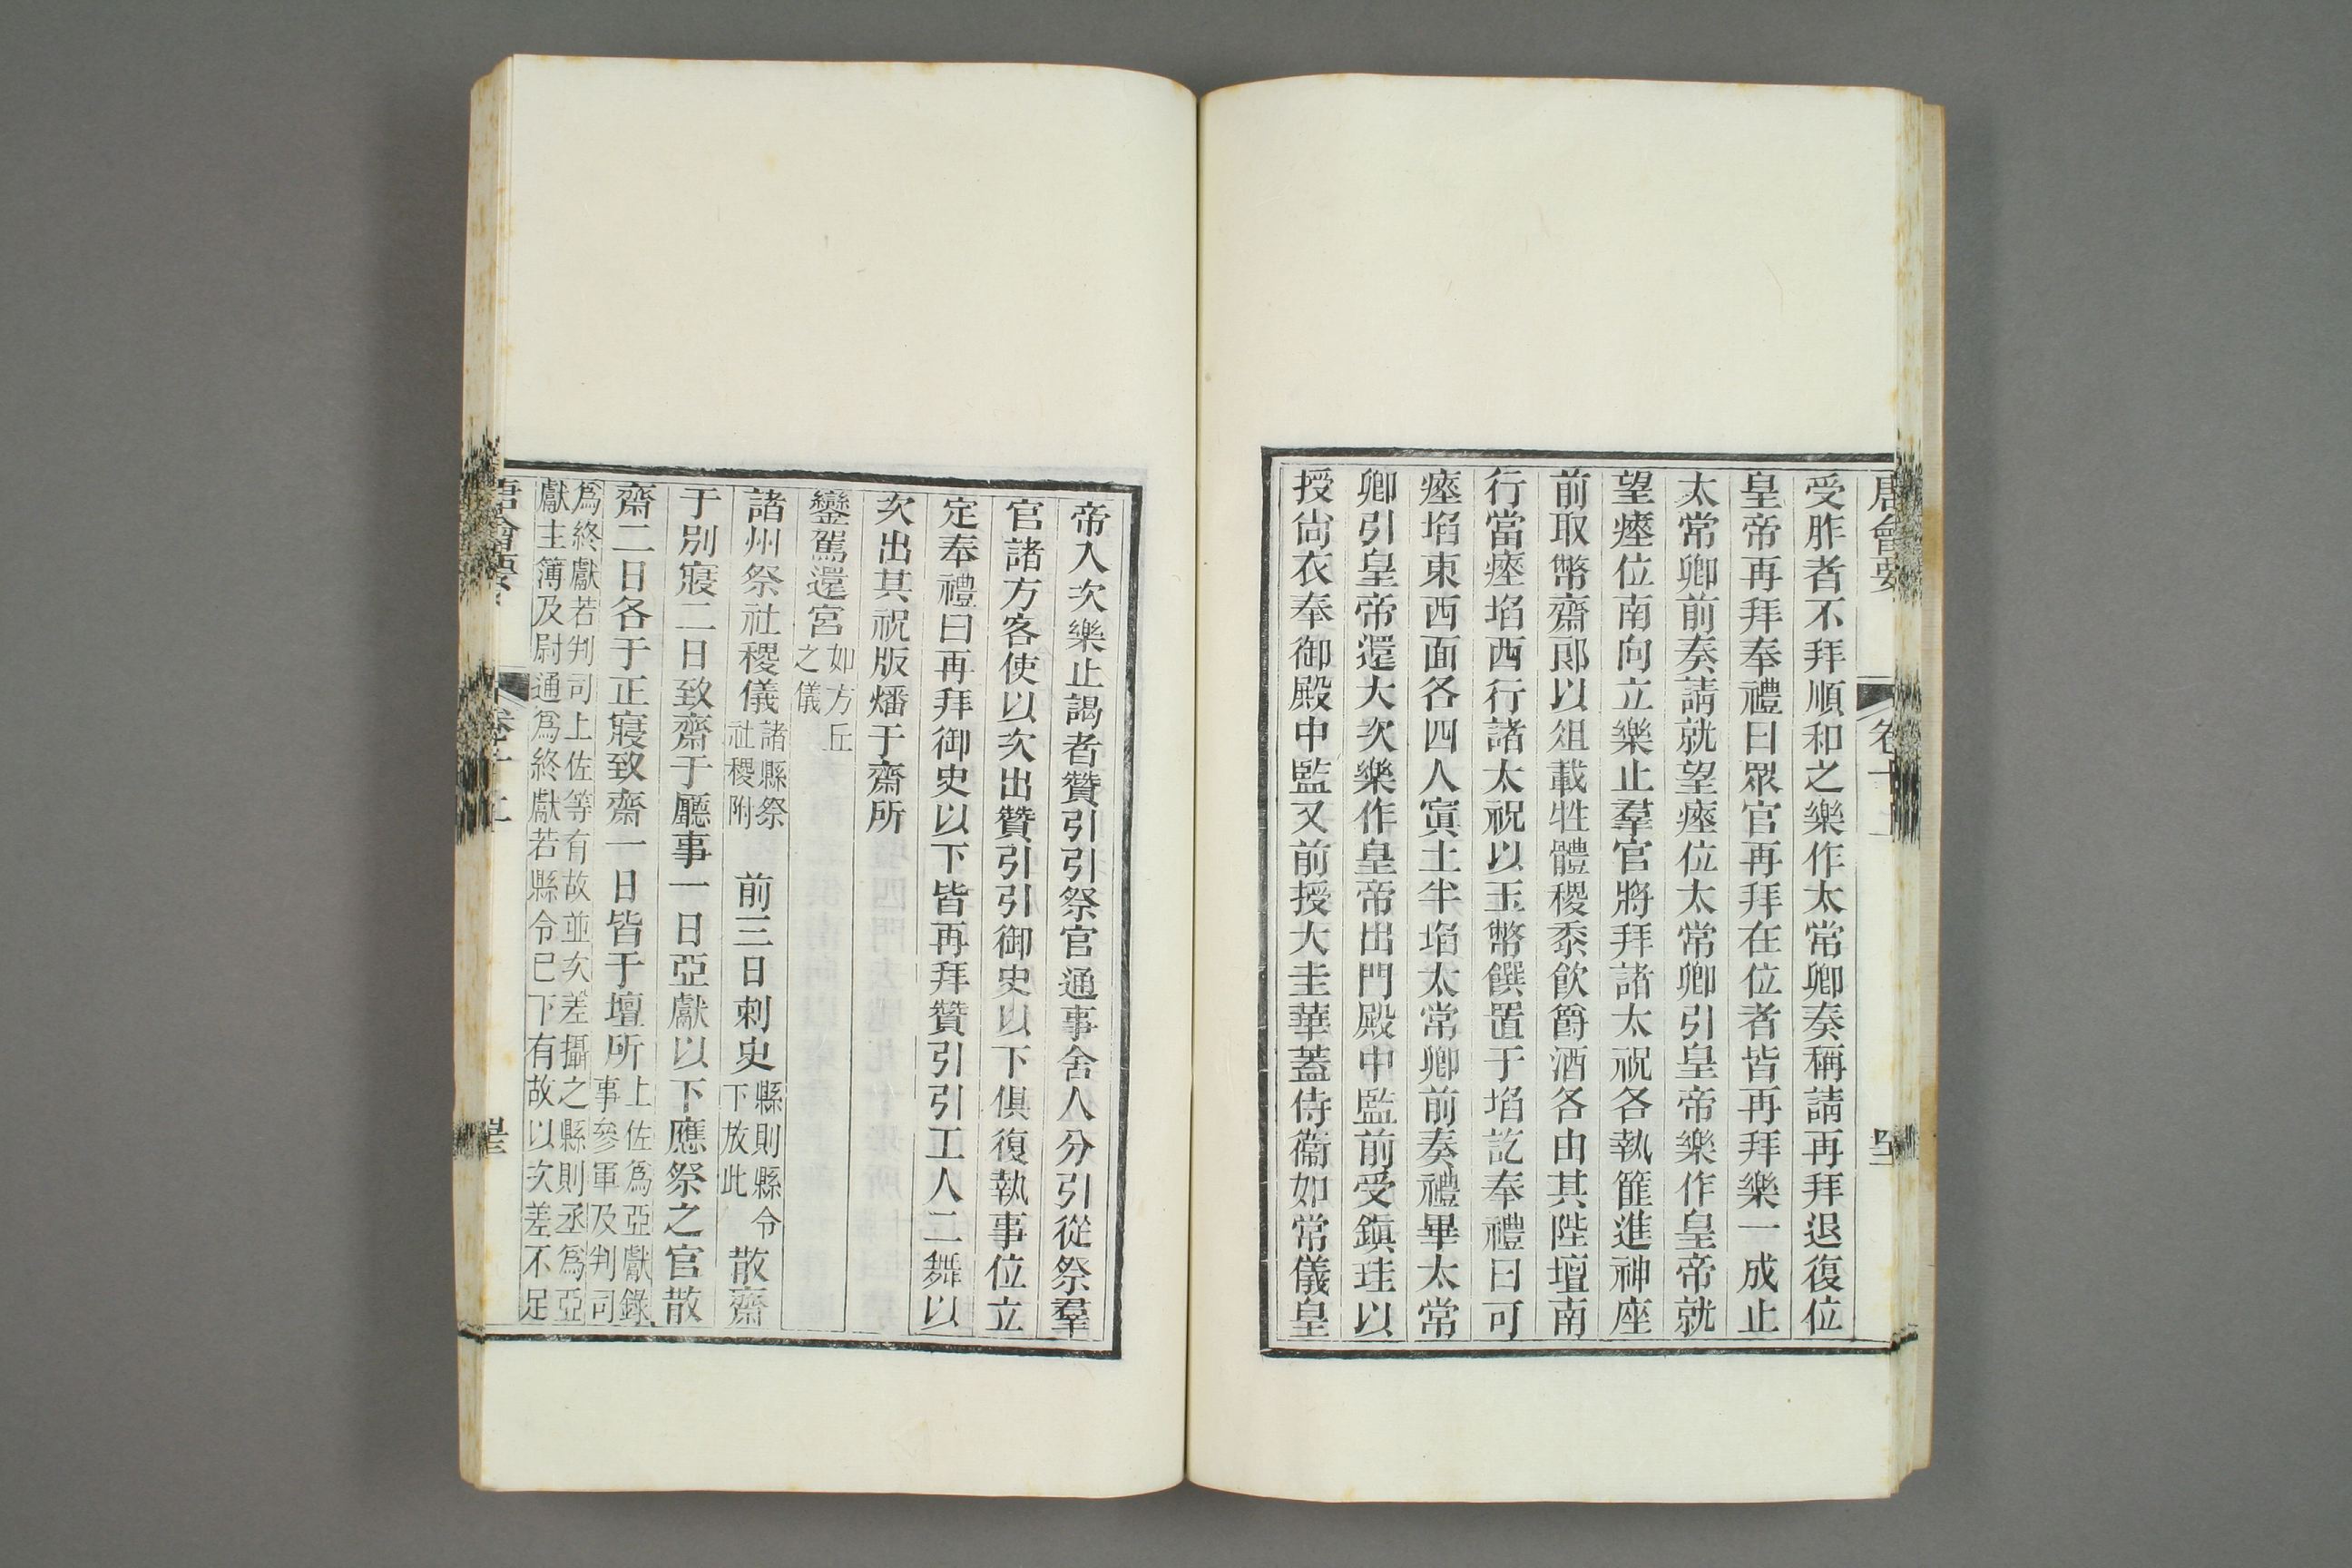 唐會要 卷十上
受胙者不拜順和之樂作太常卿奏稱請再拜退復位
皇帝再拜奉禮曰眾官再拜在位者皆再拜樂一成止
太常卿前奏請就望瘞位太常卿引皇帝樂作皇帝就
望瘞位南向立樂止羣官將拜諸太祝各執篚進神座
前取幣齋郎以俎載牲體稷黍飲爵酒各由其陛壇南
行當瘞埳西行諸太祝以玉幣饌置于埳訖奉禮曰可
瘞埳東西面各四人寘土半埳太常卿前奏禮畢太常
卿引皇帝還大次樂作皇帝出門殿中監前受鎮珪以
授尙衣奉御殿中監又前授大圭華蓋侍衞如常儀皇
帝入次樂止謁者贊引引祭官通事舍人分引從祭羣
官諸方客使以次出贊引引御史以下俱復執事位立
定奉禮曰再拜御史以下皆再拜贊引引工人二舞以
次出其祝版燔于齋所
鑾駕還宮如方丘之儀
諸州祭社稷儀諸縣祭社稷附 前三日刺史縣則縣令下放此散齋
于別寢二日致齋于廳事一日亞獻以下應祭之官散
齋二日各于正寢致齋一日皆于壇所上佐爲亞獻錄事參軍及判司
爲終獻若判司上佐等有故並次差攝之縣則丞爲亞
獻主簿及尉通爲終獻若縣令已下有故以次差不足
唐會要 卷十上